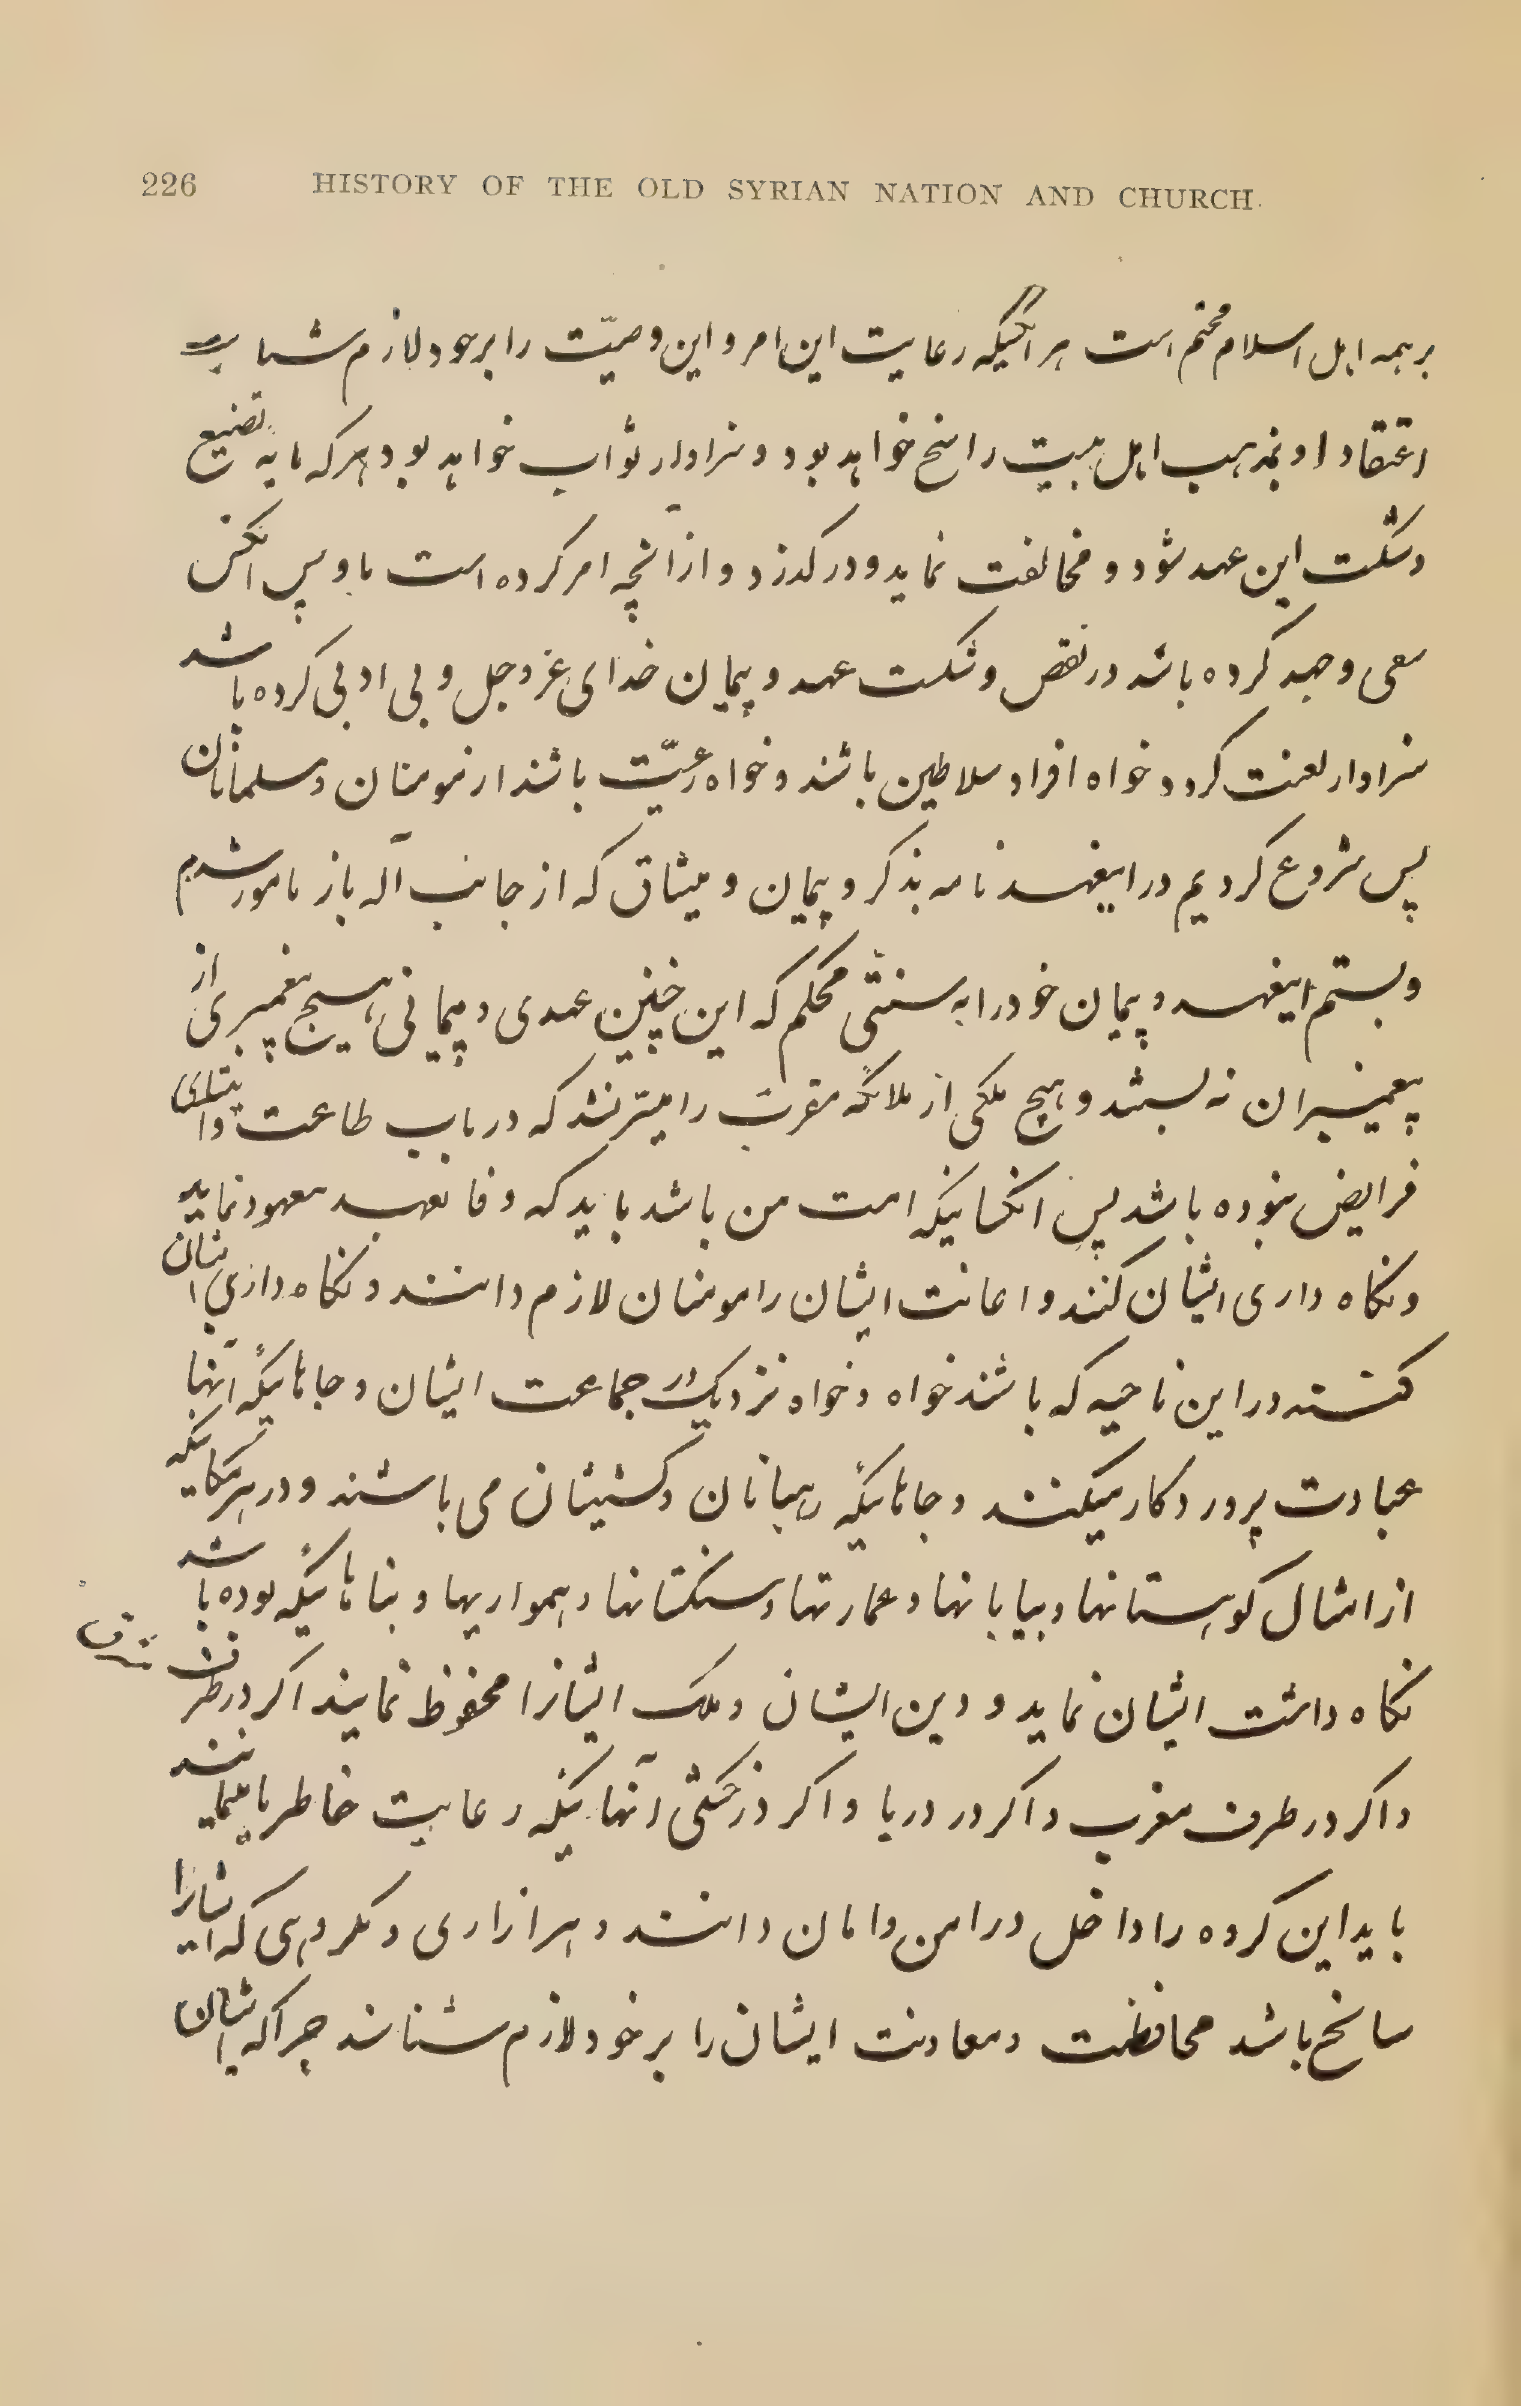 226 HISTORY OF THE OLD SYRIAN NATION AND CHURCH
بر همه اهل اسلام محتم است هر آنکسیکه رعایت این امر و این وصیّت را بر خود لازم شناسد
اعتقاد او بمذهب اهل بیت راسخ خواهد بود و سزاوار ثواب خواهد بود هر که مایه تضییع
و شکست این عهد شود و مخالفت نماید و در گذرد و از آنچه امر کرده است باو پس آنکس
سعی و جهد کرده باشد در نقص و شکست عهد و پیمان خدای عز و جل و بی ادبی کرده باشد
سزاوار لعنت گردد خواه افراد سلاطین باشند و خواه رعیّت باشند از مومنان و مسلمانان
پس شروع کردیم در اینعهد نامه بذکر و پیمان و میثاق که از جانب آله باز مامور شدیم
و بستم اینعهد و پیمان خود را به سنتّی محکلم که این چنین عهدی و پیمانی هیچ پیغمبری از
پیغمبران نه بستند و هیچ ملکی از ملائکه مقرب را میّسر نشد که در باب طاعت و ابتلای
فرایض بنوده باشد پس انکسانیکه امت من باشد باید که وفا بعهد معهود نماید
و نگاه داری ایشان کنند و اعانت ایشان را مومنان لازم دانند و نگاه داری ایشان
کنند در این ناحیه که باشند خواه و خواه نزدیک در جماعت ایشان و جاهائیکه آنها
عبادت پروردکار میکنند و جاهائیکه رهبانان و کشیشان می باشند و در هر مکانیکه
از امثال کوهستانها و بیابانها و عمارتها و سنگستانها و همواریها و بناهائیکه بوده باشد
نگاه داشت ایشان نماید و دین ایشان و ملک ایشانرا محفوظ نمایند اکر در طرف شرق
و اکر در طرف مغرب و اکر در دریا و اکر در خشکی آنهائیکه رعایت خاطر ما مینمایند
باید این کروه را داخل در امن و امان دانند و هر ازاری و مکروهی که ایشانرا
سانح باشد محافظت و معاونت ایشان را بر خود لازم شناسند چرا که ایشان